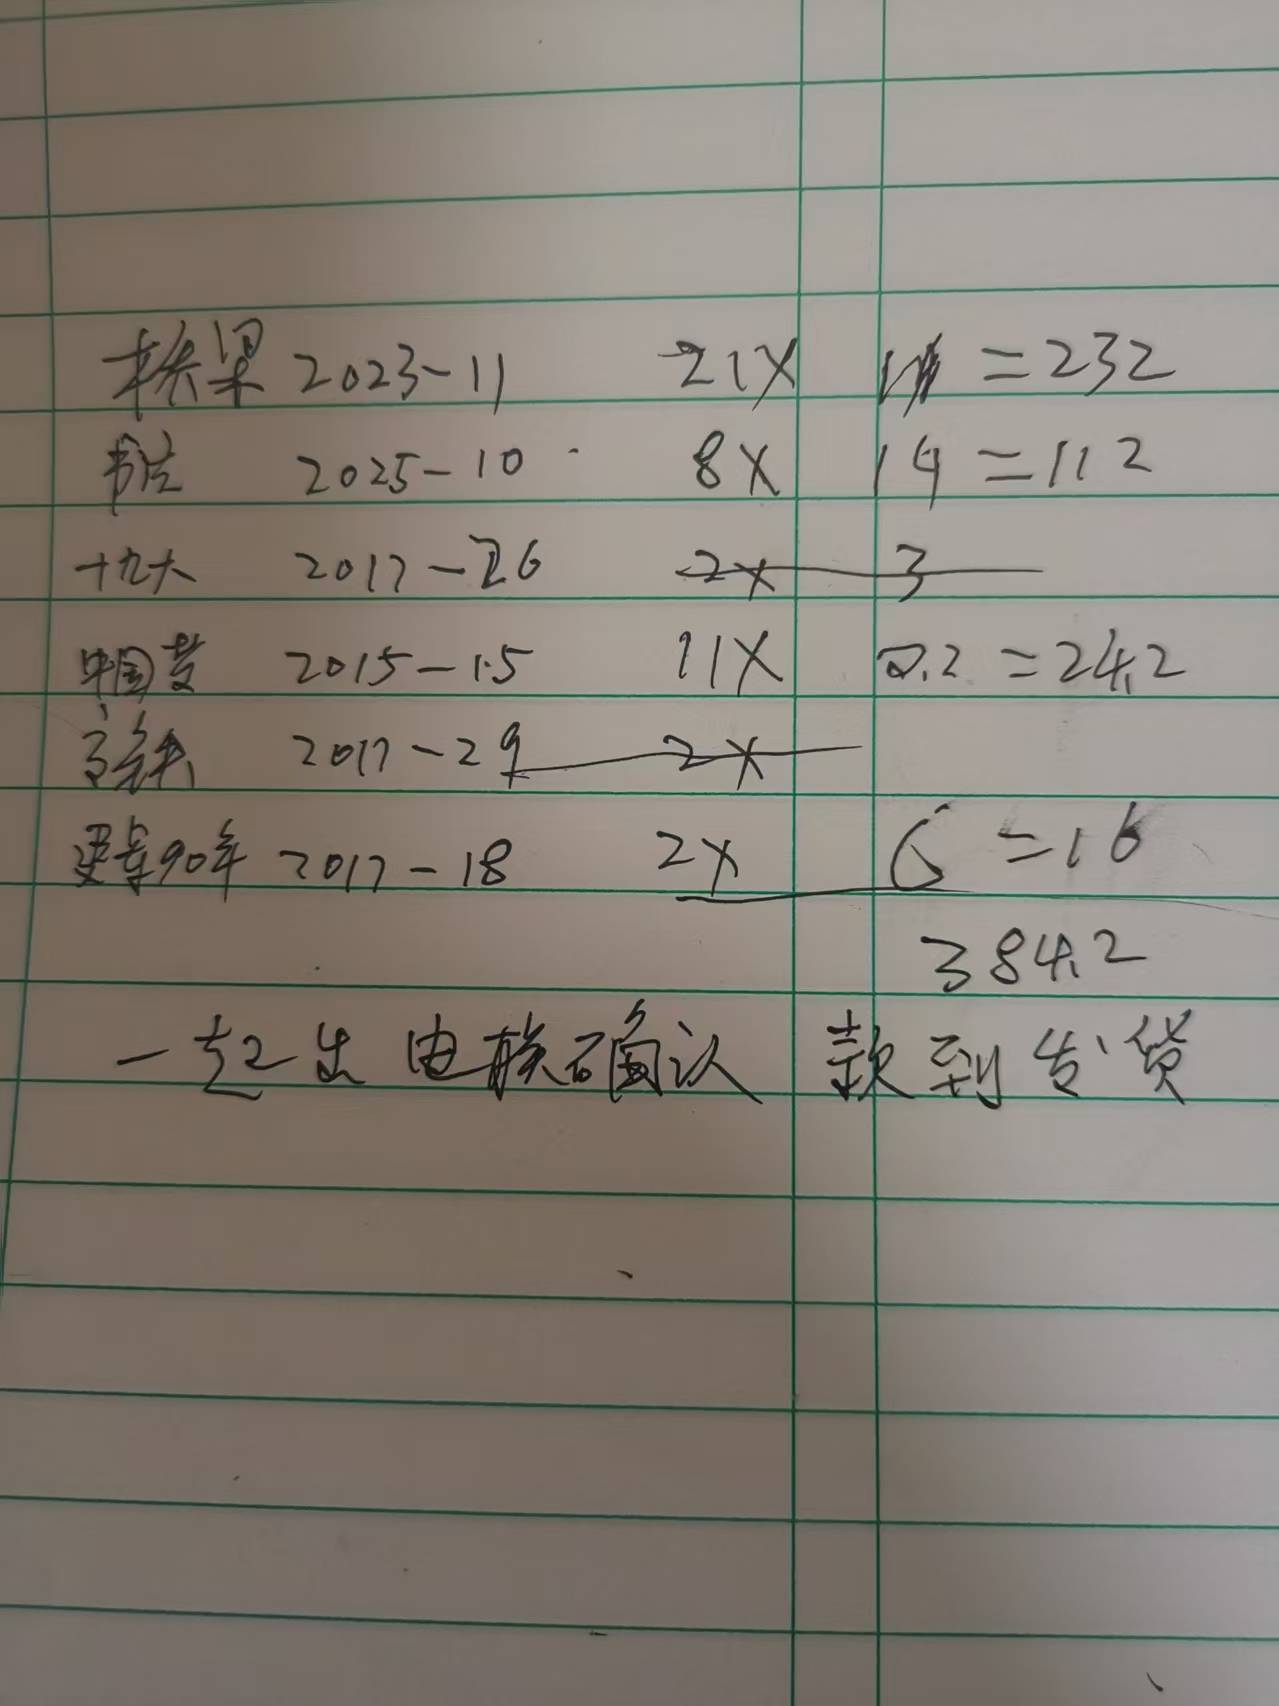 桥梁 2023-11 21X = 232
书法 2025-10 8X 14 = 112
十九大 2017-26 2X 3
中国梦 2015-1.5 11X 2.2 = 24.2
高铁 2017-29 2X
建军90年 2017-18 2X = 16
384.2
一起出 电联确认 款到发货